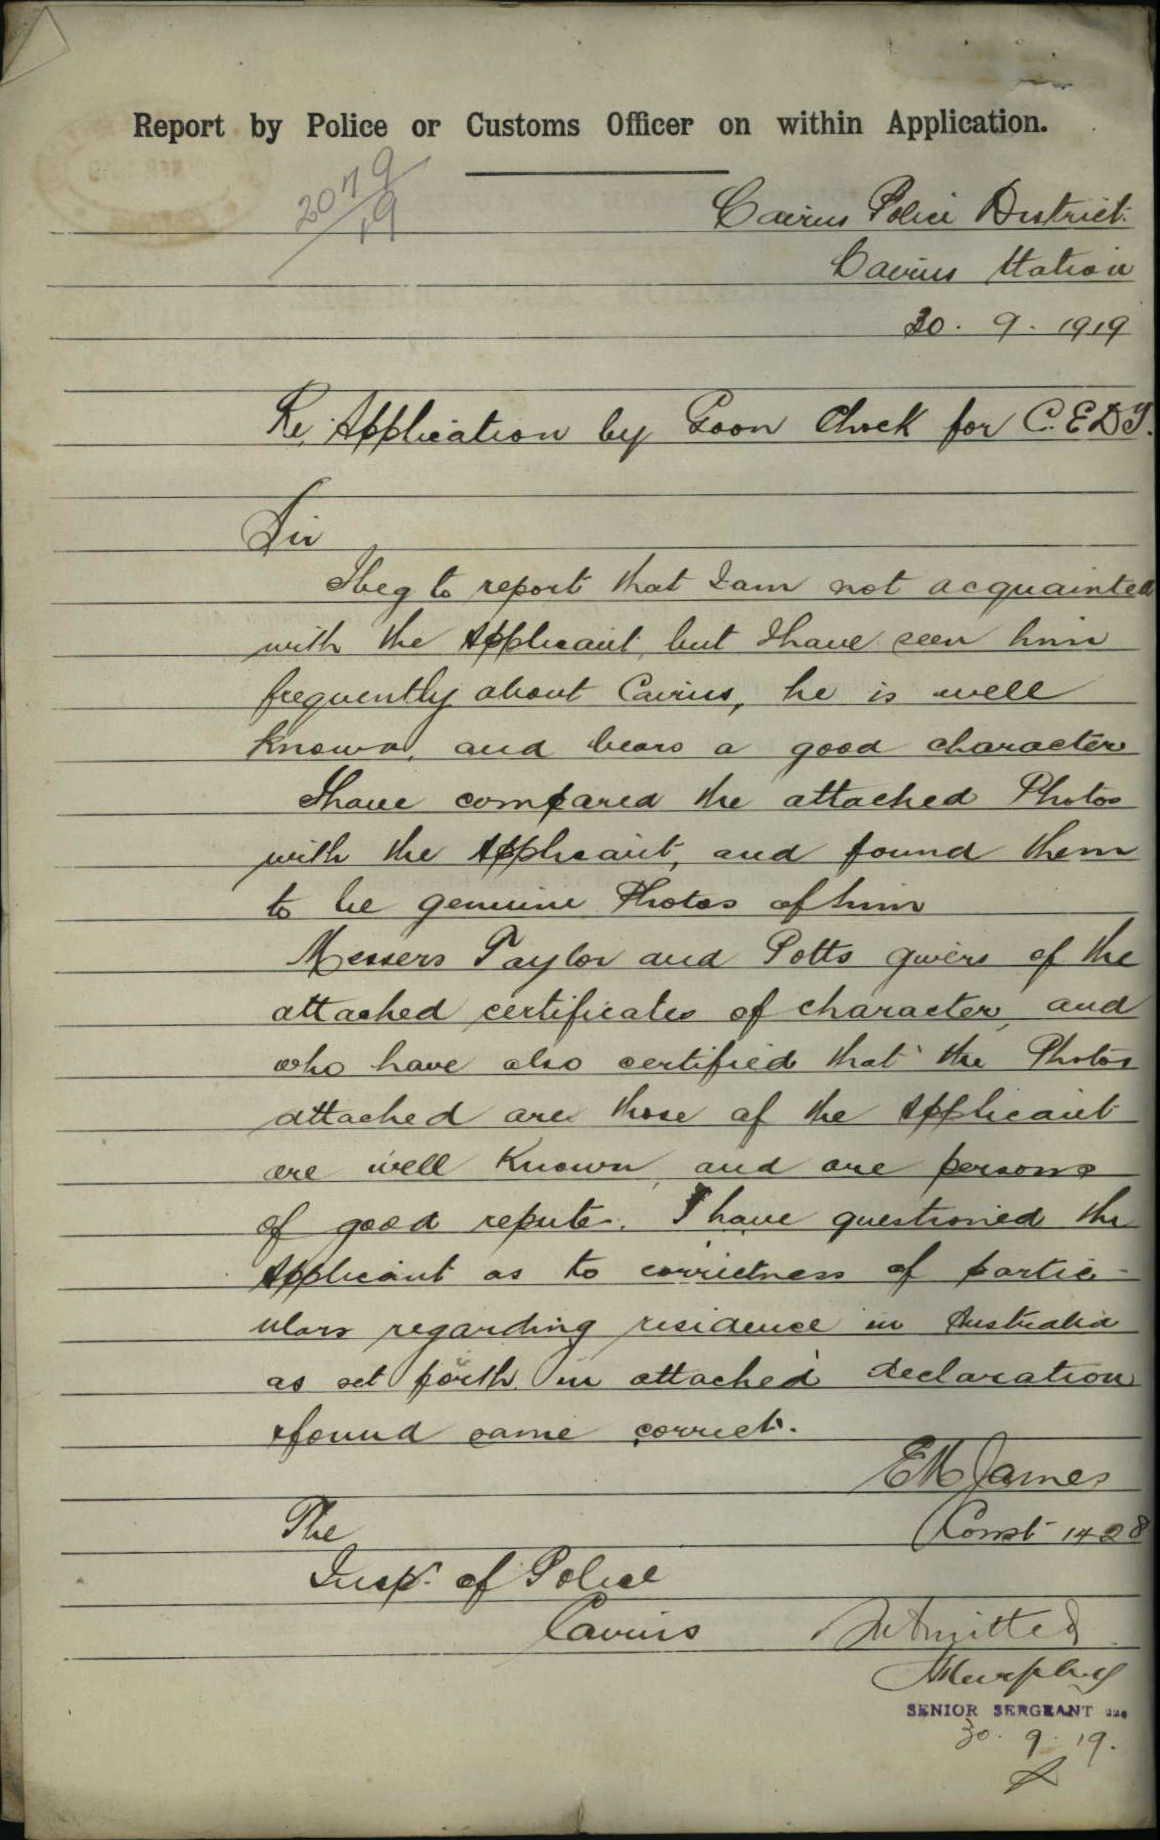 Report by Police or Customs Officer on within Application.
2079/19
Cairns Police District.
Cairns Station
30. 9. 1919
Re, Application by Goon Chock for C.E.D.T.
Sir
I beg to report that I am not acquainted
with the Applicant, but I have seen him
frequently about Cairns, he is well
known, and bears a good character
I have compared the attached Photos
with the Applicant, and found them
to be genuine Photos of him
Messers Taylor and Potts givers of the
attached certificates of character, and
who have also certified that the Photos
attached are those of the Applicant
are well known, and are persons
of good repute. I have questioned the
Applicant as to correctness of partic-
ulars regarding residence in Australia
as set forth in attached declaration
& found same correct.
EM James
Const 1428
The
Insp. of Police
Cairns
Submitted
Murphy
SENIOR SERGEANT
30. 9. 19.